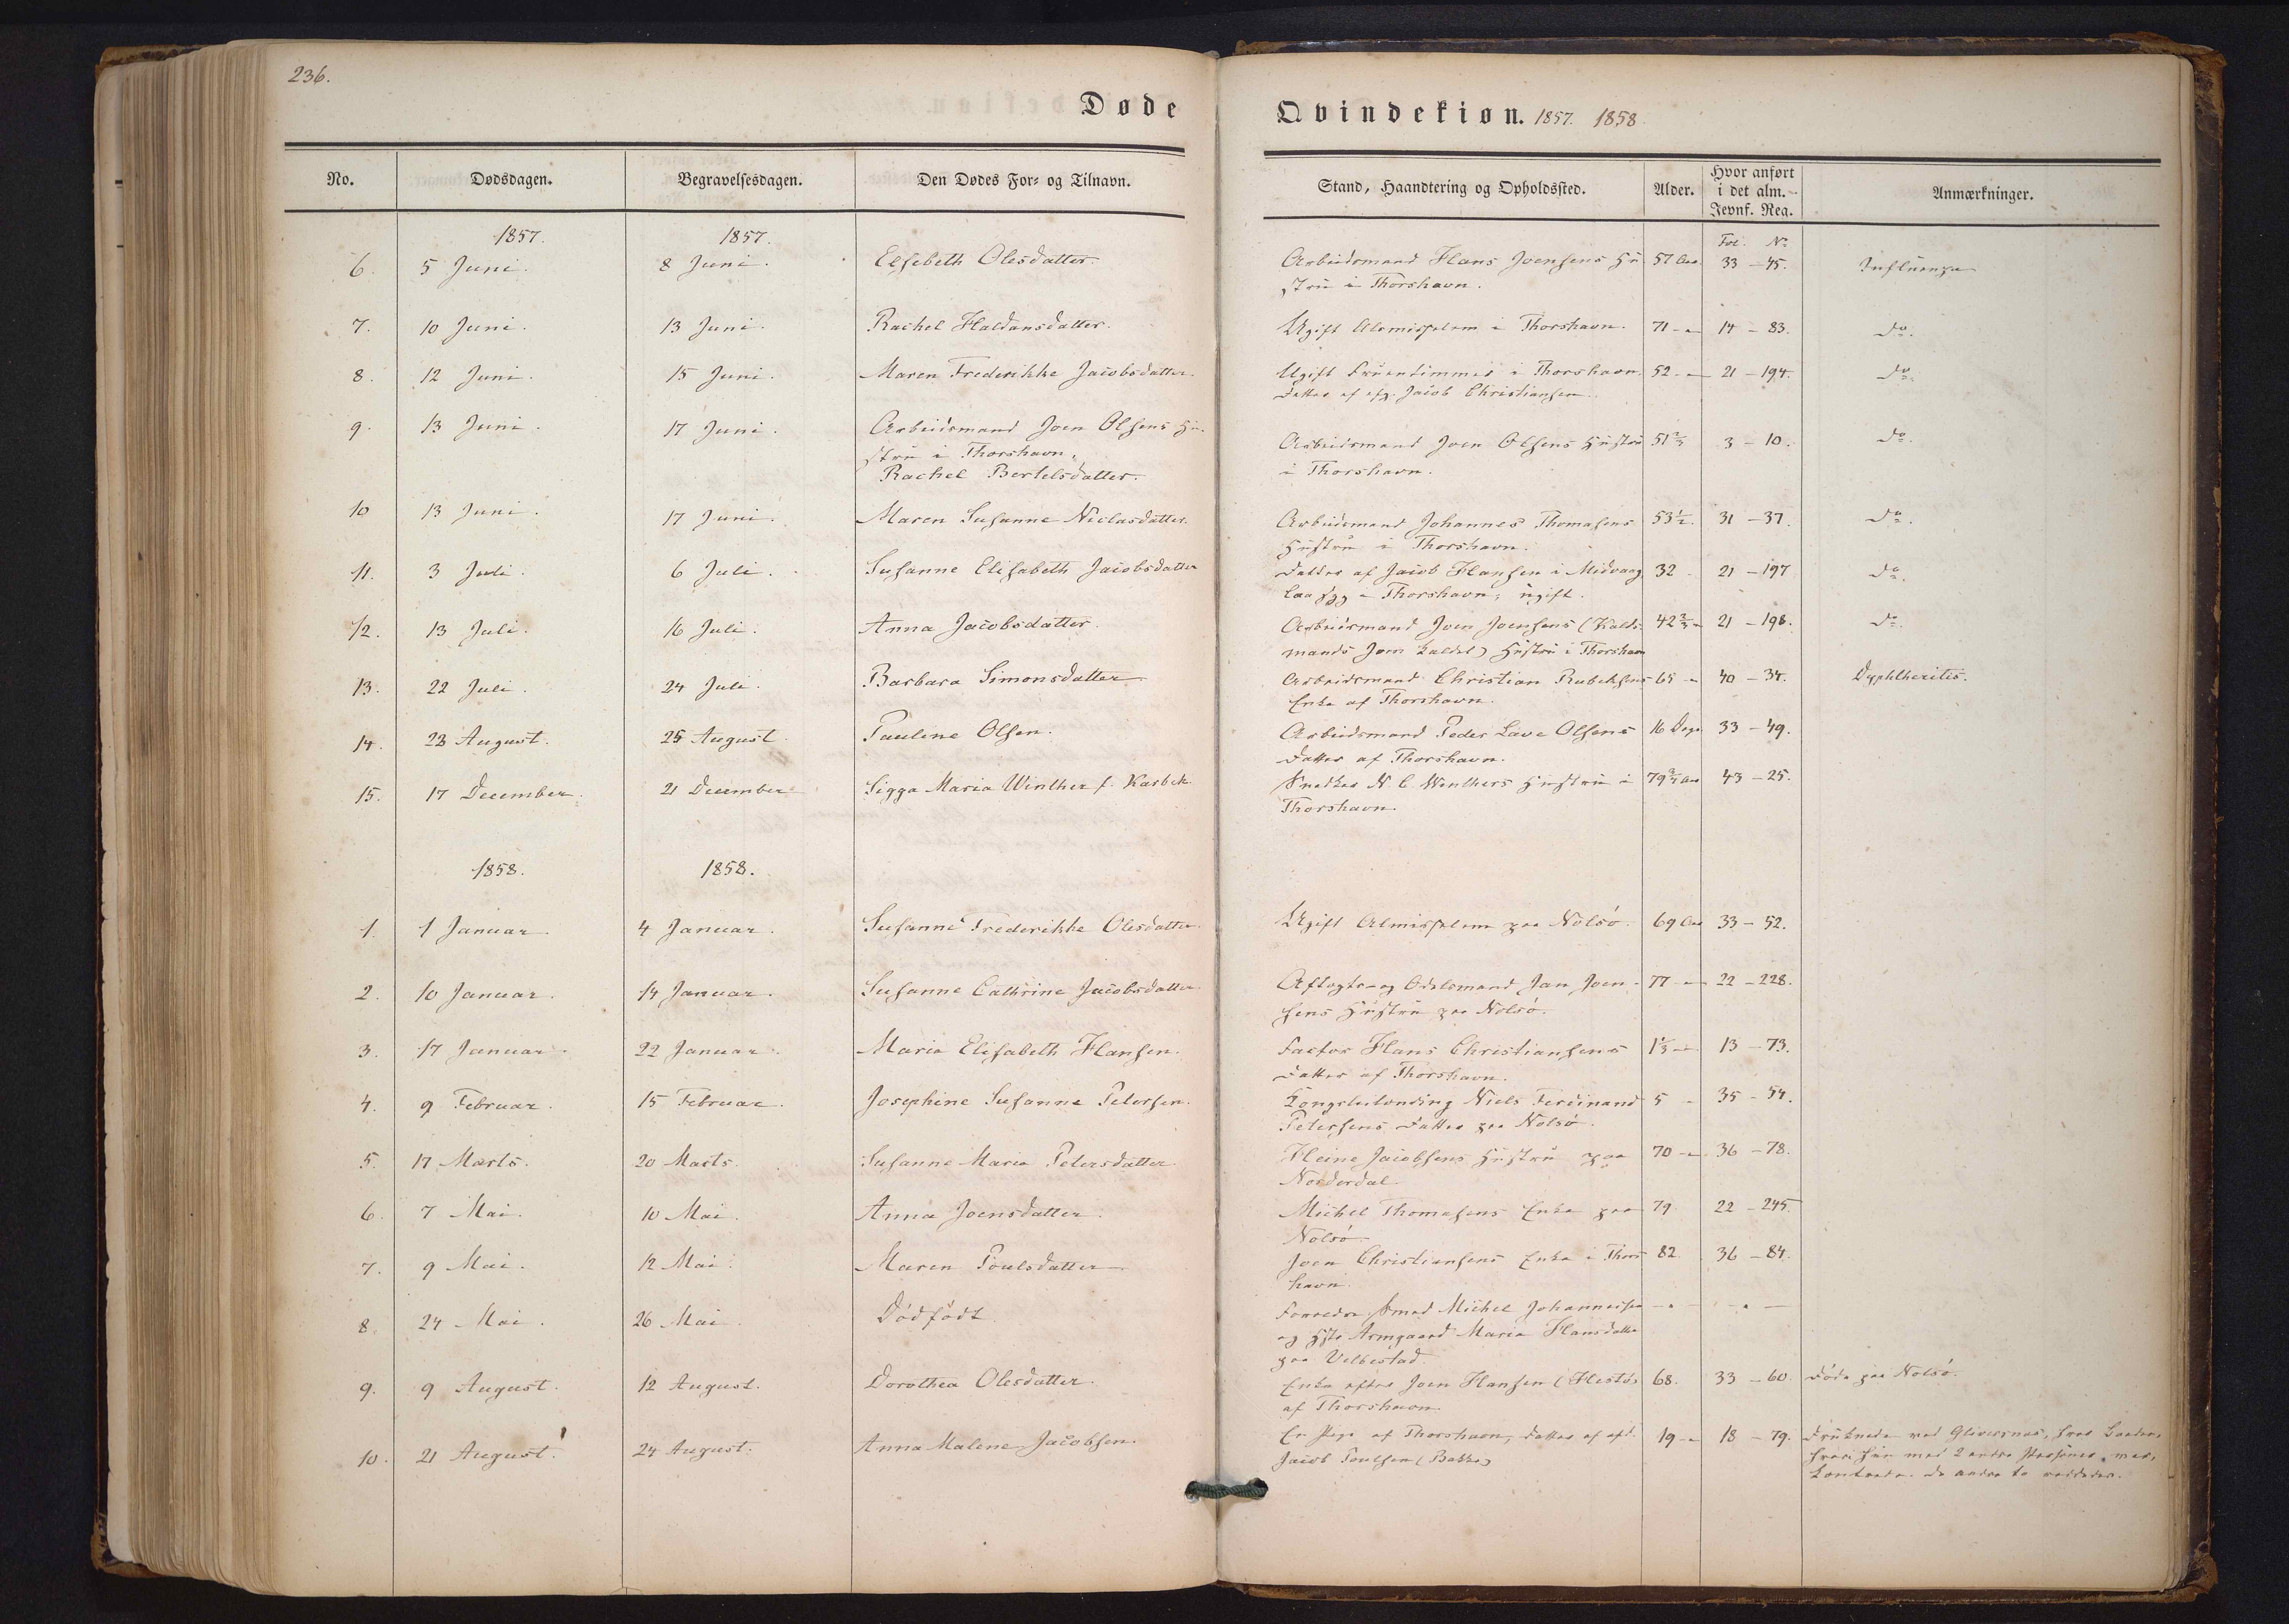 236.
Døde
Qvindekiøn. 1857. 1858
No. Dødsdagen. Begravelsesdagen. Den Dødes For- og Tilnavn. Stand, Haandtering og Opholdssted. Alder. Hvor anført i det alm. Jevnf. Reg. Anmærkninger.
1857. 1857. Fol. No
6. 5 Juni. 8 Juni. Elsebeth Olesdatter. Arbeidsmand Hans Joensens Hu- 57 Aar 33 - 45. Influenza
stru i Thorshavn.
7. 10 Juni. 13 Juni. Rachel Haldansdatter. Ugift Almisselem i Thorshavn. 71 - " 14 - 83. Do.
8. 12 Juni. 15 Juni. Maren Frederikke Jacobsdatter. Ugift Fruentimmer i Thorshavn. 52 - " 21 - 194. Do.
Datter af afg. Jacob Christiansen.
9. 13 Juni. 17 Juni. Arbeidsmand Joen Olsens Hu-
stru i Thorshavn,
Rachel Bertelsdatter. Arbeidsmand Joen Olsens Hustru 51 2/3 3 - 10. Do.
i Thorshavn.
10 13 Juni. 17 Juni. Maren Susanne Niclasdatter. Arbeidsmand Johannes Thomasens 53 1/2. 31 - 37. Do.
Hustru i Thorshavn.
11. 3 Juli. 6 Juli. Susanne Elisabeth Jacobsdatter Datter af Jacob Hansen i Midvaag 32 21 - 197 Do.
laa syg i Thorshavn; ugift.
12. 13 Juli. 16 Juli. Anna Jacobsdatter. Arbeidsmand Joen Joensens (Kalds- 42 2/3 " 21 - 198. Do.
mands Joen kaldet) Hustru i Thorshavn
13. 22 Juli. 24 Juli. Barbara Simonsdatter Arbeidsmand Christian Rubeksens 65 - " 40 - 34. Dyphtheritis.
Enke af Thorshavn.
14. 23 August. 25 August. Pauline Olsen. Arbeidsmand Peder Lave Olsens 16 Dage 33 - 49.
Datter af Thorshavn.
15. 17 December. 21 December Sigga Maria Winther f. Karbek Snedker N. C. Winthers Hustru i 79 3/4 Aar 43 - 25.
Thorshavn.
1858. 1858.
1. 1 Januar. 4 Januar. Susanne Frederikke Olesdatter. Ugift Almisselem paa Nolsö. 69 Aar 33 - 52.
2. 10 Januar. 14 Januar. Susanne Cathrine Jacobsdatter. Aftægts- og Odelsmand Jan Joen- 77 - " 22 - 228.
sens Hustru paa Nolsö.
3. 17 Januar. 22 Januar. Maria Elisabeth Hansen. Factor Hans Christiansens 1 1/3 - " 13 - 73.
Datter af Thorshavn.
4. 9 Februar. 15 Februar. Josephine Susanne Petersen. Kongsleilending Niels Ferdinand 5 - 35 - 54.
Petersens Datter paa Nolsö.
5. 17 Marts. 20 Marts. Susanne Maria Petersdatter Heine Jacobsens Hustru paa 70 - " 36 - 78.
Norderdal
6. 7 Mai. 10 Mai. Anna Joensdatter. Michel Thomasens Enke paa 79. 22 - 245.
Nolsö.
7. 9 Mai. 12 Mai. Maren Poulsdatter Joen Christiansens Enke i Thors- 82. 36 - 84.
havn.
8. 24 Mai. 26 Mai. Dödfödt Smed Michel Johannesen - " - - " -
og Hstr Armgaard Maria Hansdatter
paa Velbestad.
9. 9 August. 12 August. Dorothea Olesdatter. Enke efter Joen Hansen (Hestö) 68. 33 - 60. Döde paa Nolsö.
af Thorshavn.
10. 21 August. 24 August. Anna Malene Jacobsen. En Pige af Thorshavn, Datter af afd. 19 - " 18 - 79. Druknede ved Glivursnæs, hvor Baaden,
Jacob Poulsen (Bakke) hvori hun med 2 andre Personer var,
kantrede. De andre to reddedes.